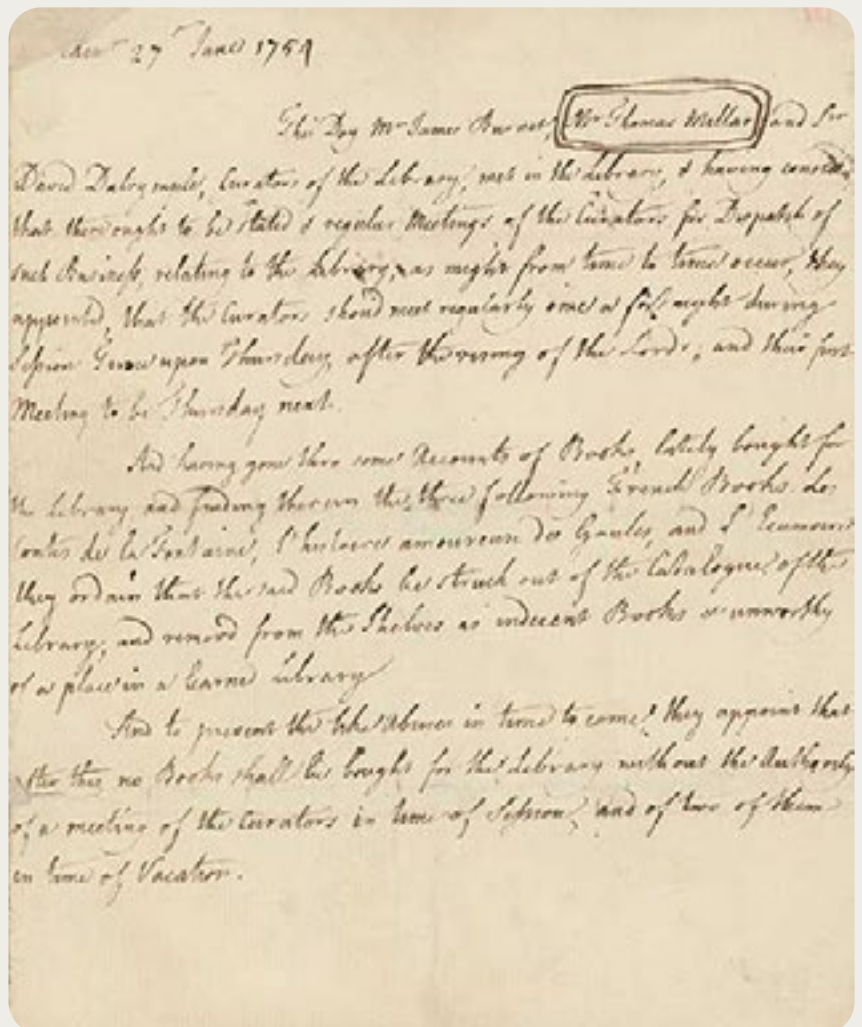 27 June 1754
This Day Mr James Burnet Mr Thomas Millar and Sir
David Dalrymple, Curators of the Library, met in the Library, & having
that there ought to be stated & regular Meetings of the Curators for Dispatch of
such Business, relating to the Library, as might from time to time occur, they
appointed, that the Curators should meet regularly once a fortnight during
Session upon Thursday, after the rising of the Lords; and their first
Meeting to be Thursday next.
And having gone thro some Accounts of Books, lately bought for
the Library and finding therein the three following French Books. Les
Contes de la Fontaine, l'histoire amoureuse des Gaules, and L'Ecumoire
they ordain that the said Books be struck out of the Catalogue of the
Library, and removd from the Shelves as indecent Books & unworthy
of a place in a learned Library
And to prevent the like Abuses in time to come, they appoint that
after this no Books shall be bought for the Library without the Authority
of a meeting of the Curators in time of Session, and of two of them
in time of Vacation.